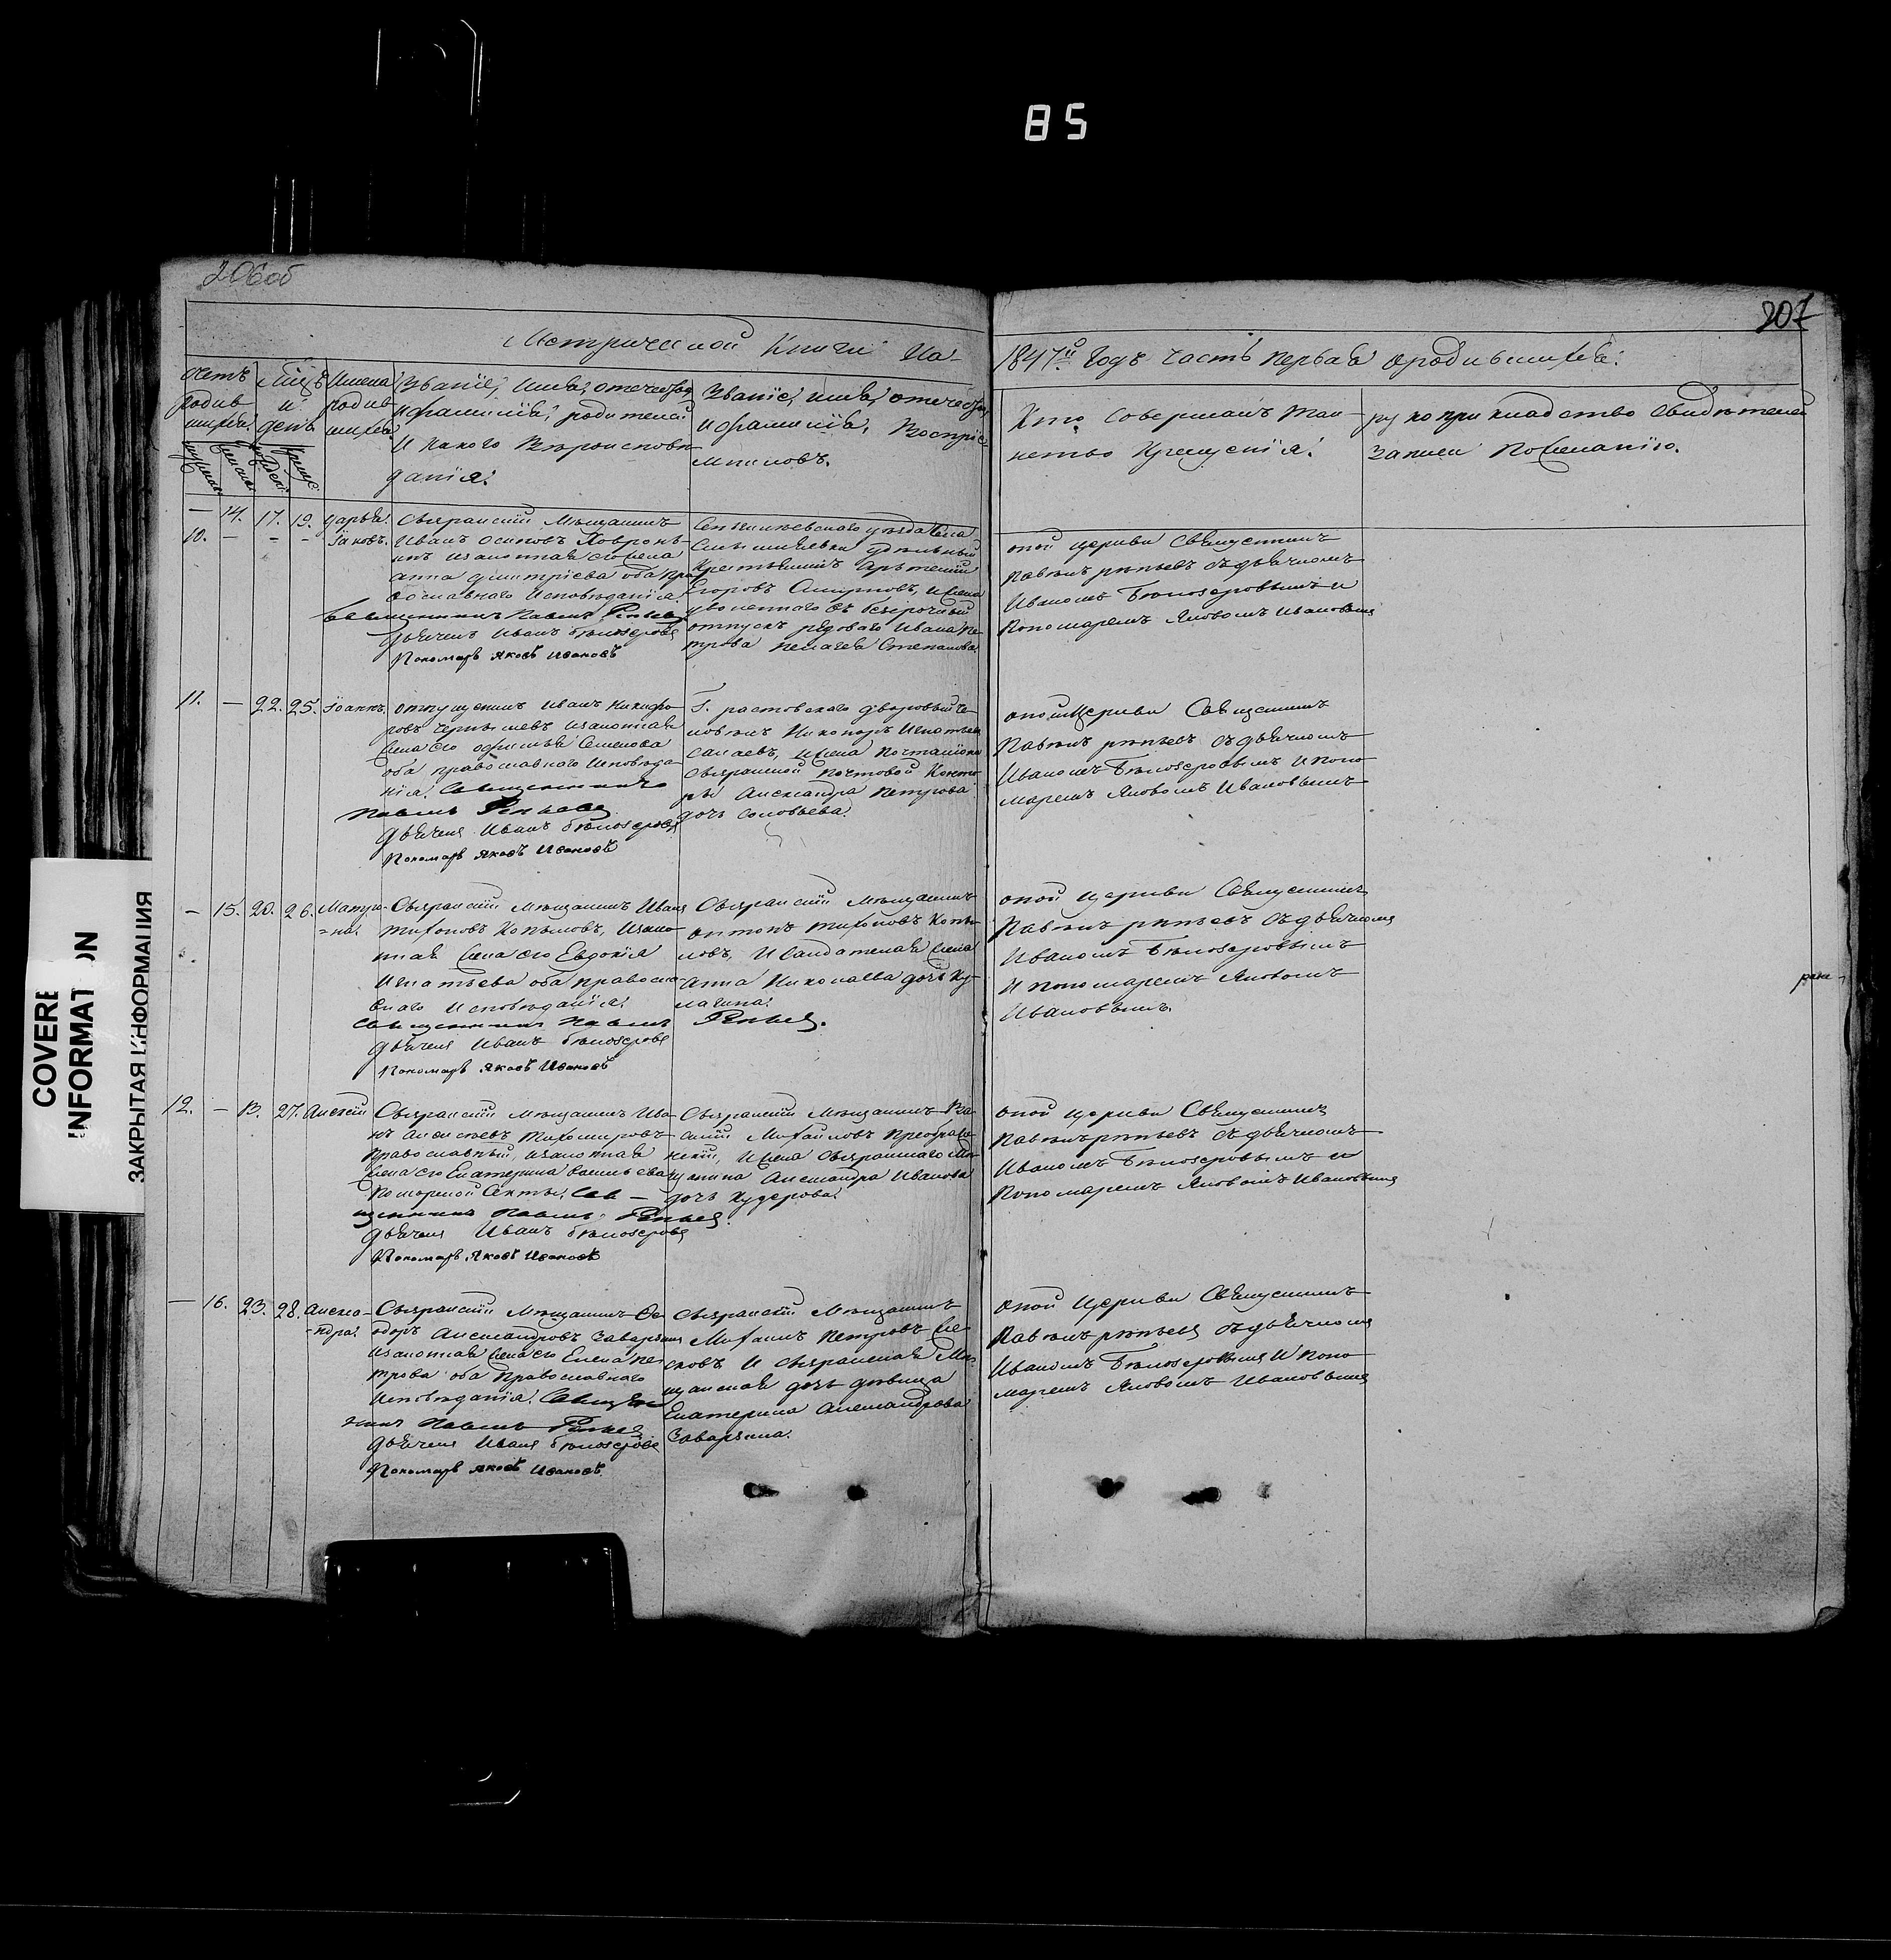 85
206об
207
Метрической Книги На
1847й Годъ часть первая о родившихся:
Счетъ родив шихся
Мсцъ и день
Имена родив шихся
Званіе, имя, отчество,
и фамилія, родителей
и какого Вѣроисповѣ
данія.
Званіе, имя, отчество,
и фамилія, Воспріе
мниковъ.
Кто совершалъ Таи-
нство Крещенія.
рукоприкладство свидѣтелей
записи по желанію.
— 14. 17. 19. Дарья.
10. — - - Іаковъ.
Сызранскій Мѣщанинъ
Иванъ Осиповъ
и законная его жена
Анна Дмитріева оба пра
вославнаго Исповѣданія.
Священникъ Павелъ Рѣпьевъ
Дьячекъ Иванъ Бѣлозеровъ
Пономарь Яковъ Ивановъ
Сенгилѣевскаго уѣзда села
удѣльный
Крестьянинъ Артемій
Егоровъ Смирновъ, и жена
уволеннаго въ безсрочный
отпускъ рядоваго Ивана Пе
трова Пелагея Степанова
оной церкви Священникъ
Павелъ Рѣпьевъ съ дьячкомъ
Иваномъ Бѣлозеровымъ и
Пономаремъ Яковомъ Ивановымъ
11. — 22. 25. Іоаннъ.
отпущенникъ Иванъ Никифо
ровъ Чернышевъ и законная
жена его Семенова
оба православнаго исповѣда
нія. Священникъ
Павелъ Рѣпьевъ
Дьячекъ Иванъ Бѣлозеровъ
Пономарь Яковъ Ивановъ
Г. растовскаго дворовый че
ловѣкъ Никаноръ Игнатьевъ
и жена почталіона
Сызранской Почтовой Конто
ры Александра Петрова
дочь Соловьева.
оной Церкви Священникъ
Павелъ Рѣпьевъ съ дьячкомъ
Иваномъ Бѣлозеровымъ и поно
маремъ Яковомъ Ивановымъ
— 15. 20. 26. Матро-
=на.
Сызранскій Мѣщанинъ Иванъ
Тихоновъ Копыловъ, и зако
нная жена его Евдокія
Игнатьева оба правосла
внаго Исповѣданія.
Священникъ Павелъ Рѣпьевъ.
Дьячекъ Иванъ Бѣлозеровъ
Пономарь Яковъ Ивановъ
Сызранскій Мѣщанинъ
Антонъ Тихоновъ Копы
ловъ, и солдатская жена
Анна Николаева дочь Ку
лагина.
оной церкви Священникъ
Павелъ Рѣпьевъ съ дьячкомъ
Иваномъ Бѣлозеровымъ
и пономаремъ Яковомъ
Ивановымъ.
12. — 13. 27. Алексій
Сызранскій Мѣщанинъ Ива
нъ Алексѣевъ Тихомировъ
православный, и законная
жена его Екатерина Васильева
Поморской Секты. Свя-
щенникъ Павелъ Рѣпьевъ.
Дьячекъ Иванъ Бѣлозеровъ
Пономарь Яковъ Ивановъ
Сызранскій Мѣщанинъ Ва
силій Михаиловъ Преображе
нскій, и жена Сызранскаго Мѣ
щанина Александра Иванова
дочь Кудерова.
оной церкви Священникъ
Павелъ Рѣпьевъ съ дьячкомъ
Иваномъ Бѣлозеровымъ и
Пономаремъ Яковомъ Ивановымъ
— 16. 23. 28. Алекса-
-ндра.
Сызранскій Мѣщанинъ Ѳе
одоръ Александровъ Заварзинъ
и законная жена его Елена Пе
трова оба православнаго
исповѣданія. Священ
никъ Павелъ Рѣпьевъ
Дьячекъ Иванъ Бѣлозеровъ
Пономарь Яковъ Ивановъ.
Сызранскій Мѣщанинъ
Михаилъ Петровъ
и Сызранская Мѣ
щанская дочь дѣвица
Екатерина Александрова
Заварзина.
оной Церкви Священникъ
Павелъ Рѣпьевъ съ дьячкомъ
Иваномъ Бѣлозеровымъ и поно
маремъ Яковомъ Ивановымъ
COVERE
INFORMAT ON
ЗАКРЫТАЯ ИНФОРМАЦИЯ